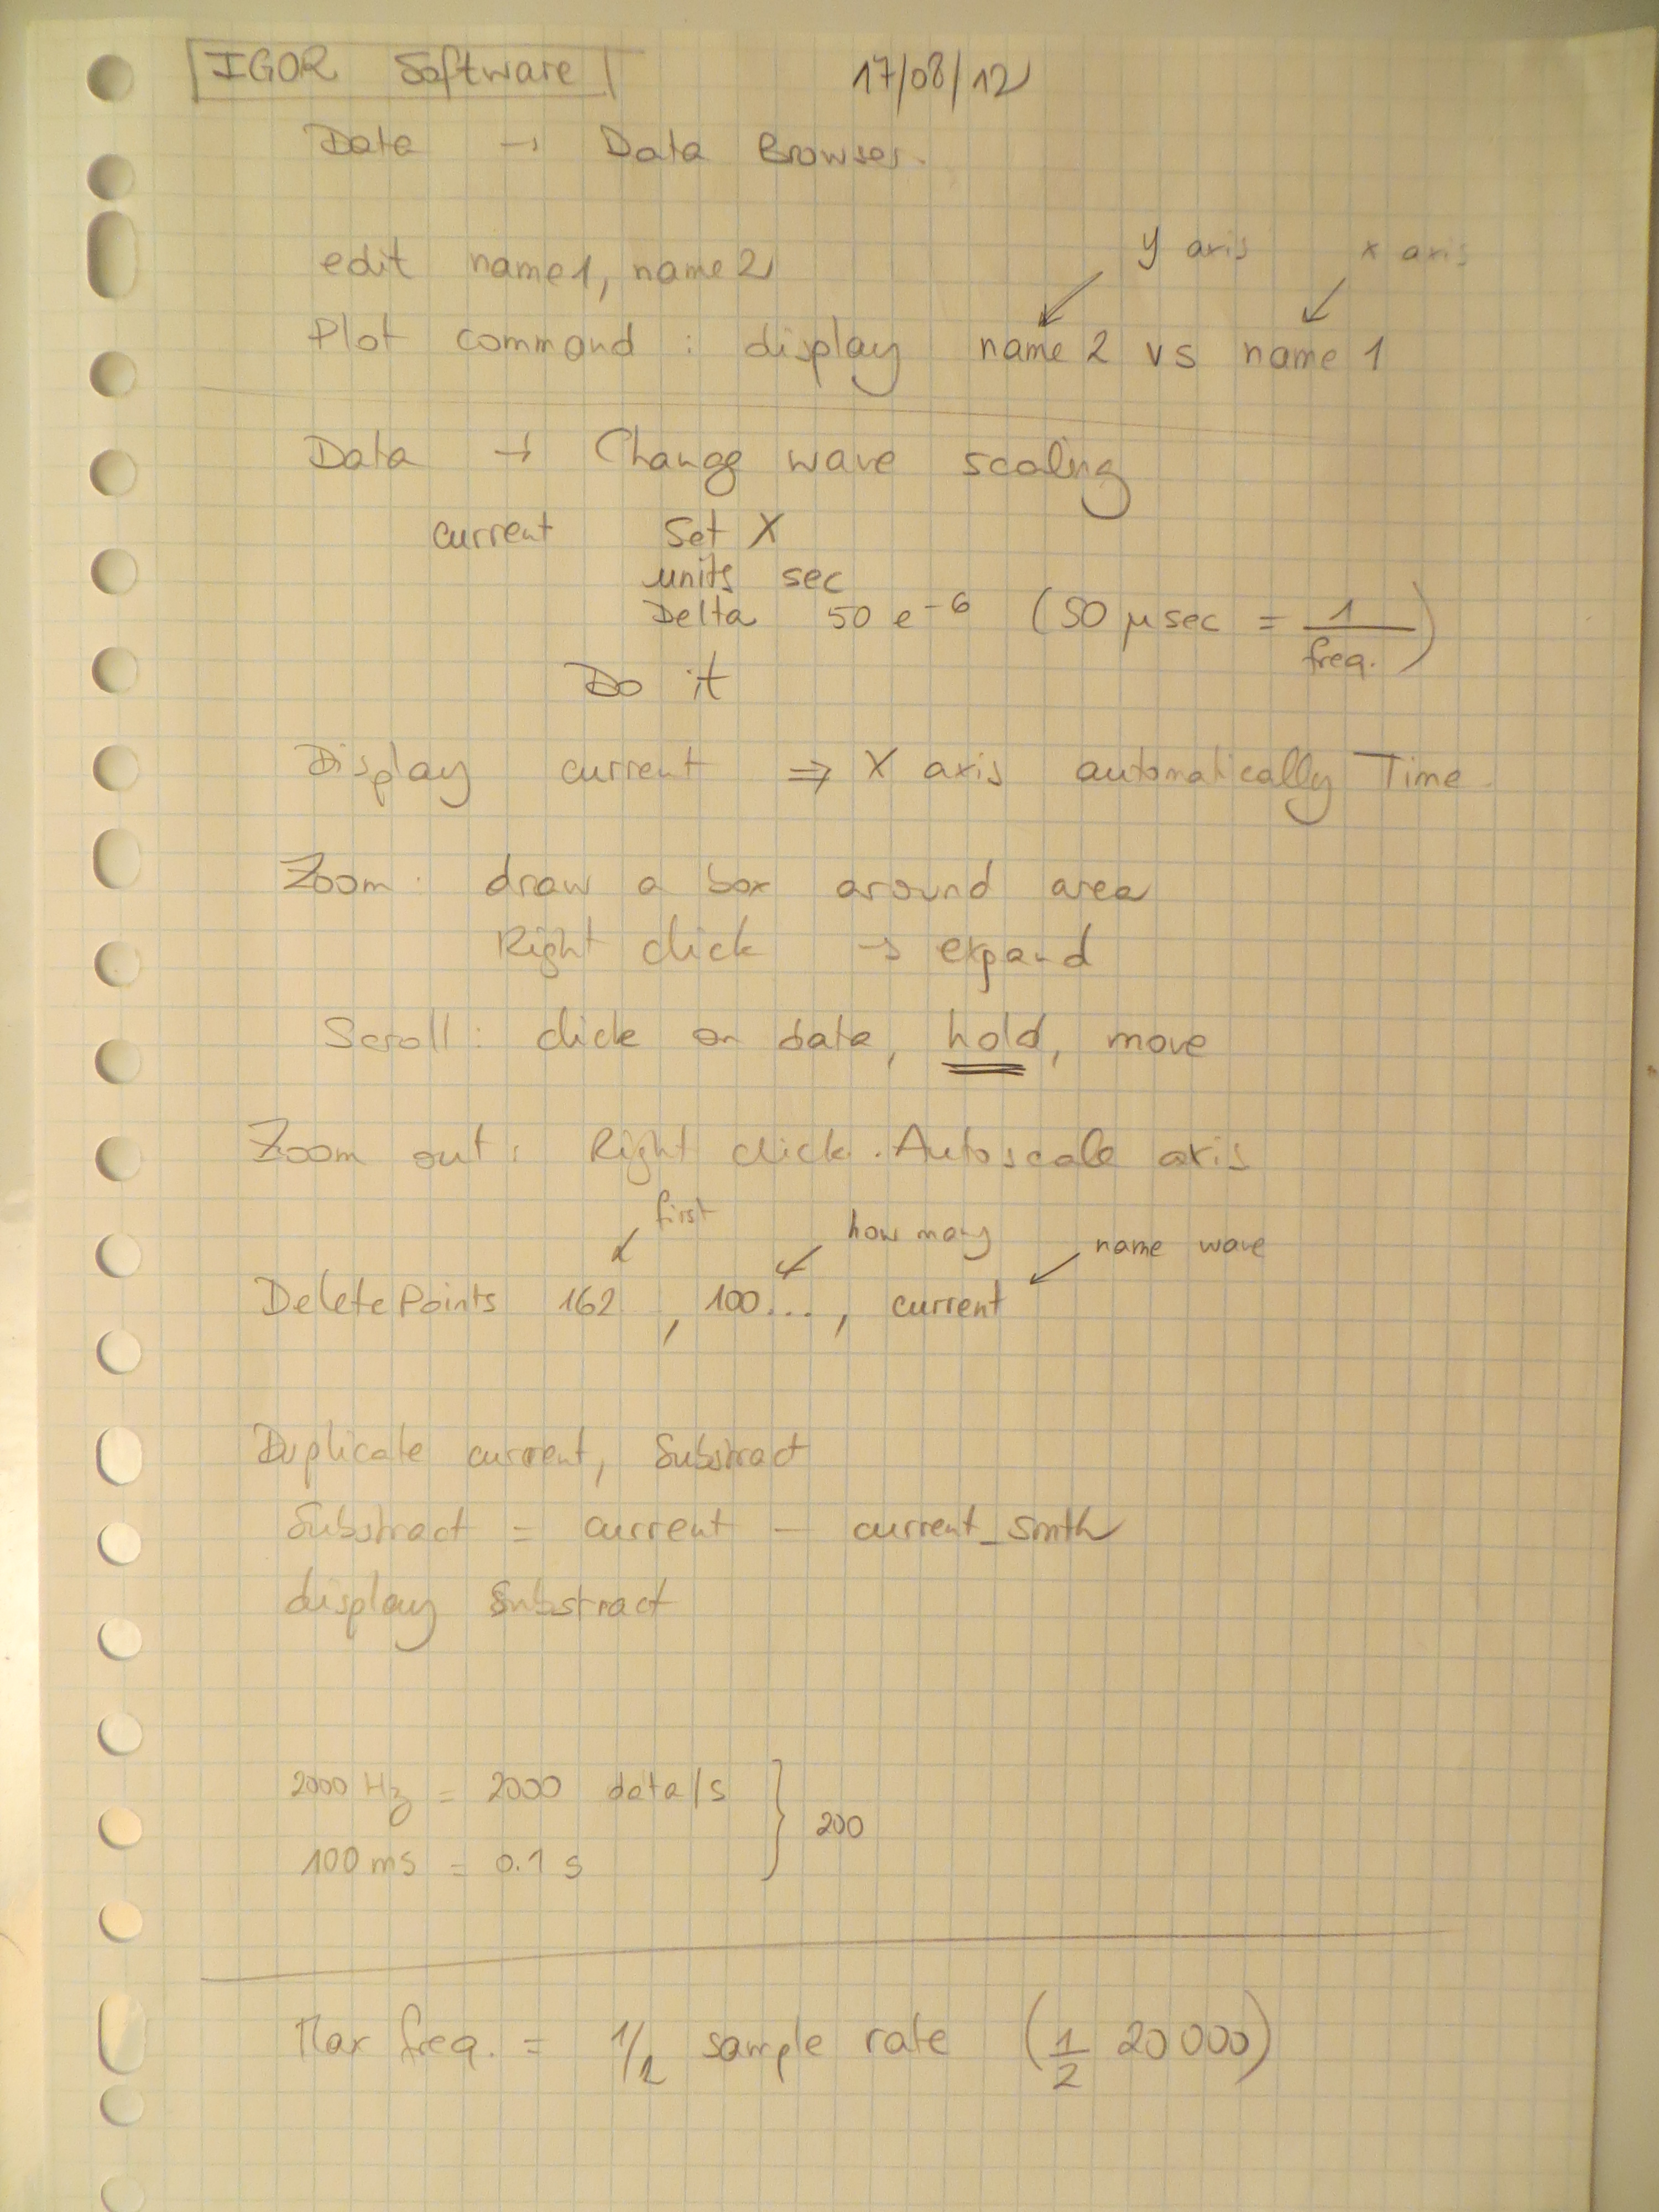 IGOR Software 17/08/12
Data → Data Browser.
y axis x axis
edit name1, name2
Plot command : display name 2 vs name 1
Data → Change wave scaling
current Set X
units sec
Delta 50 e⁻⁶ (50 μsec = 1/freq.)
Do it
Display current ⇒ X axis automatically Time.
Zoom : draw a box around area
Right click → expand
Scroll : click on data, hold, move
Zoom out : Right click . Autoscale axis
first how many name wave
DeletePoints 162 , 100... , current
Duplicate current, Substract
Substract = current - current_smth
display Substract
2000 Hz = 2000 data/s } 200
100 ms = 0.1 s
Max freq. = 1/2 sample rate (1/2 20 000)